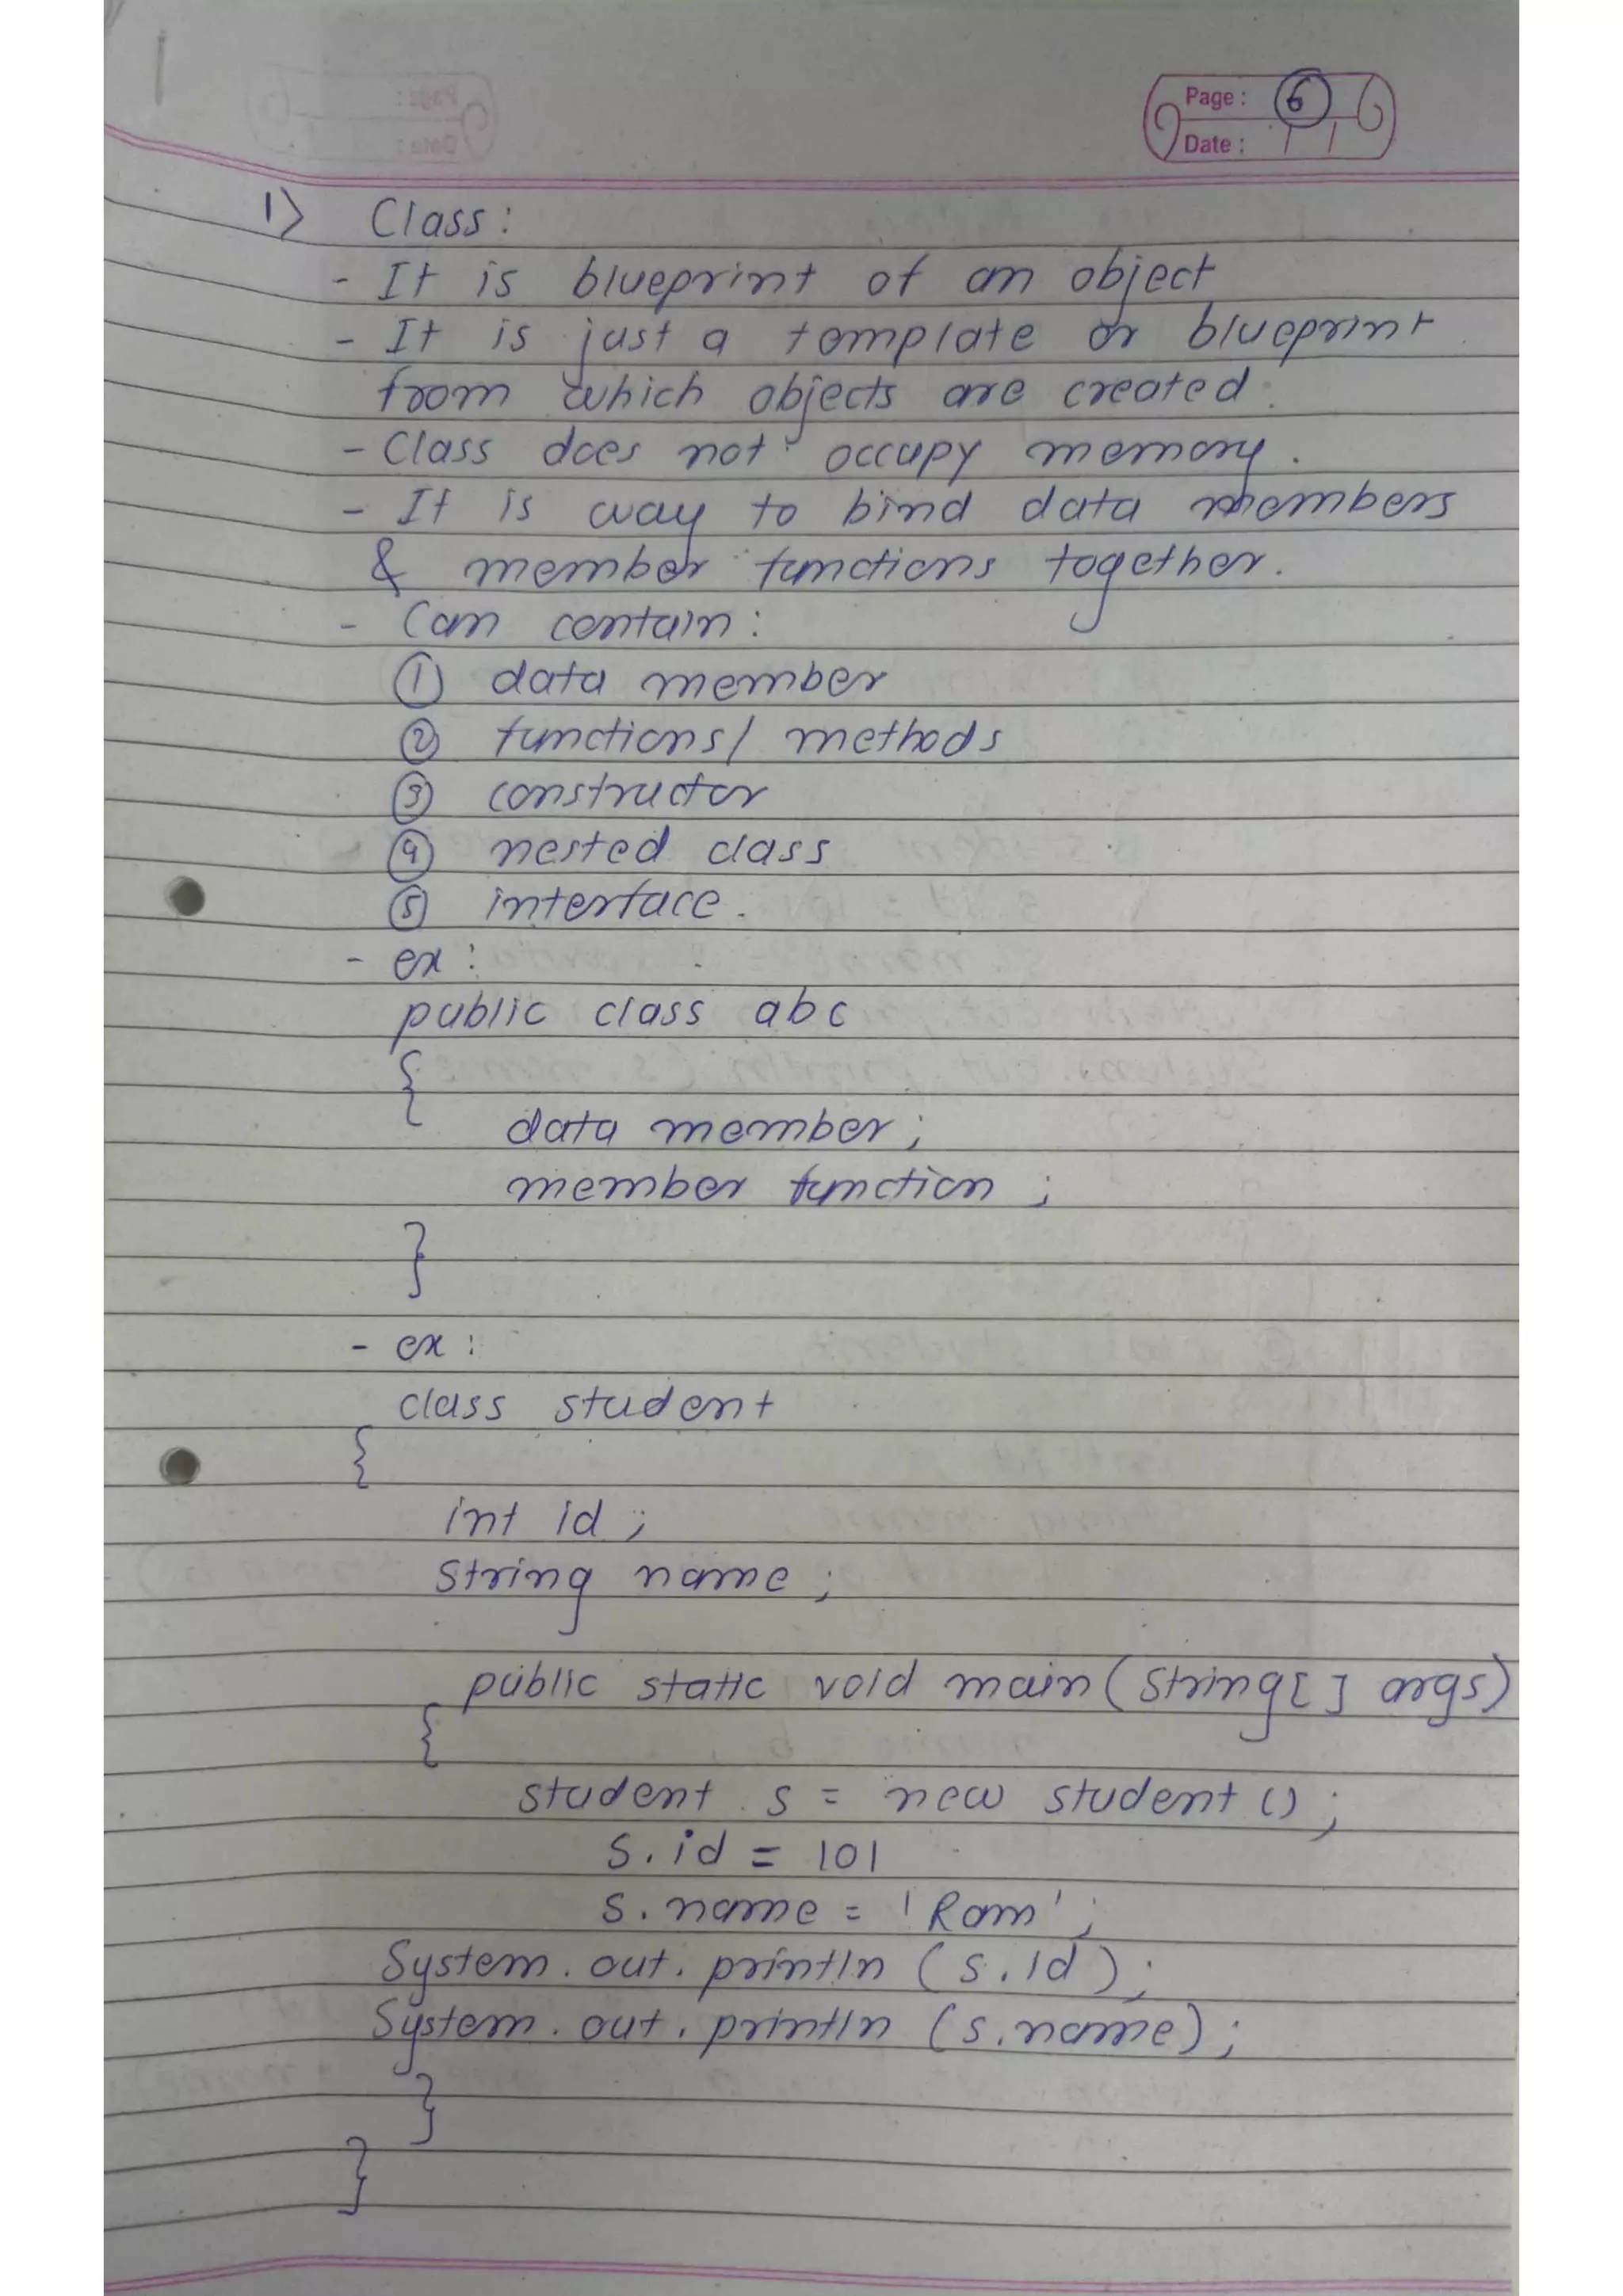 Page: 6
Date: / /
1) Class:
- It is blueprint of an object
- It is just a template or blueprint
from which objects are created.
- Class does not occupy memory.
- It is way to bind data members
& member functions together.
- Can contain:
① data member
② functions/ methods
③ constructor
④ nested class
⑤ interface.
- ex:
public class abc
{
data member;
member function;
}
- ex:
class student
{
int id;
String name;
public static void main(String[] args)
{
student s = new student();
s.id = 101
s.name = 'Ram';
System.out.println(s.id);
System.out.println(s.name);
}
}